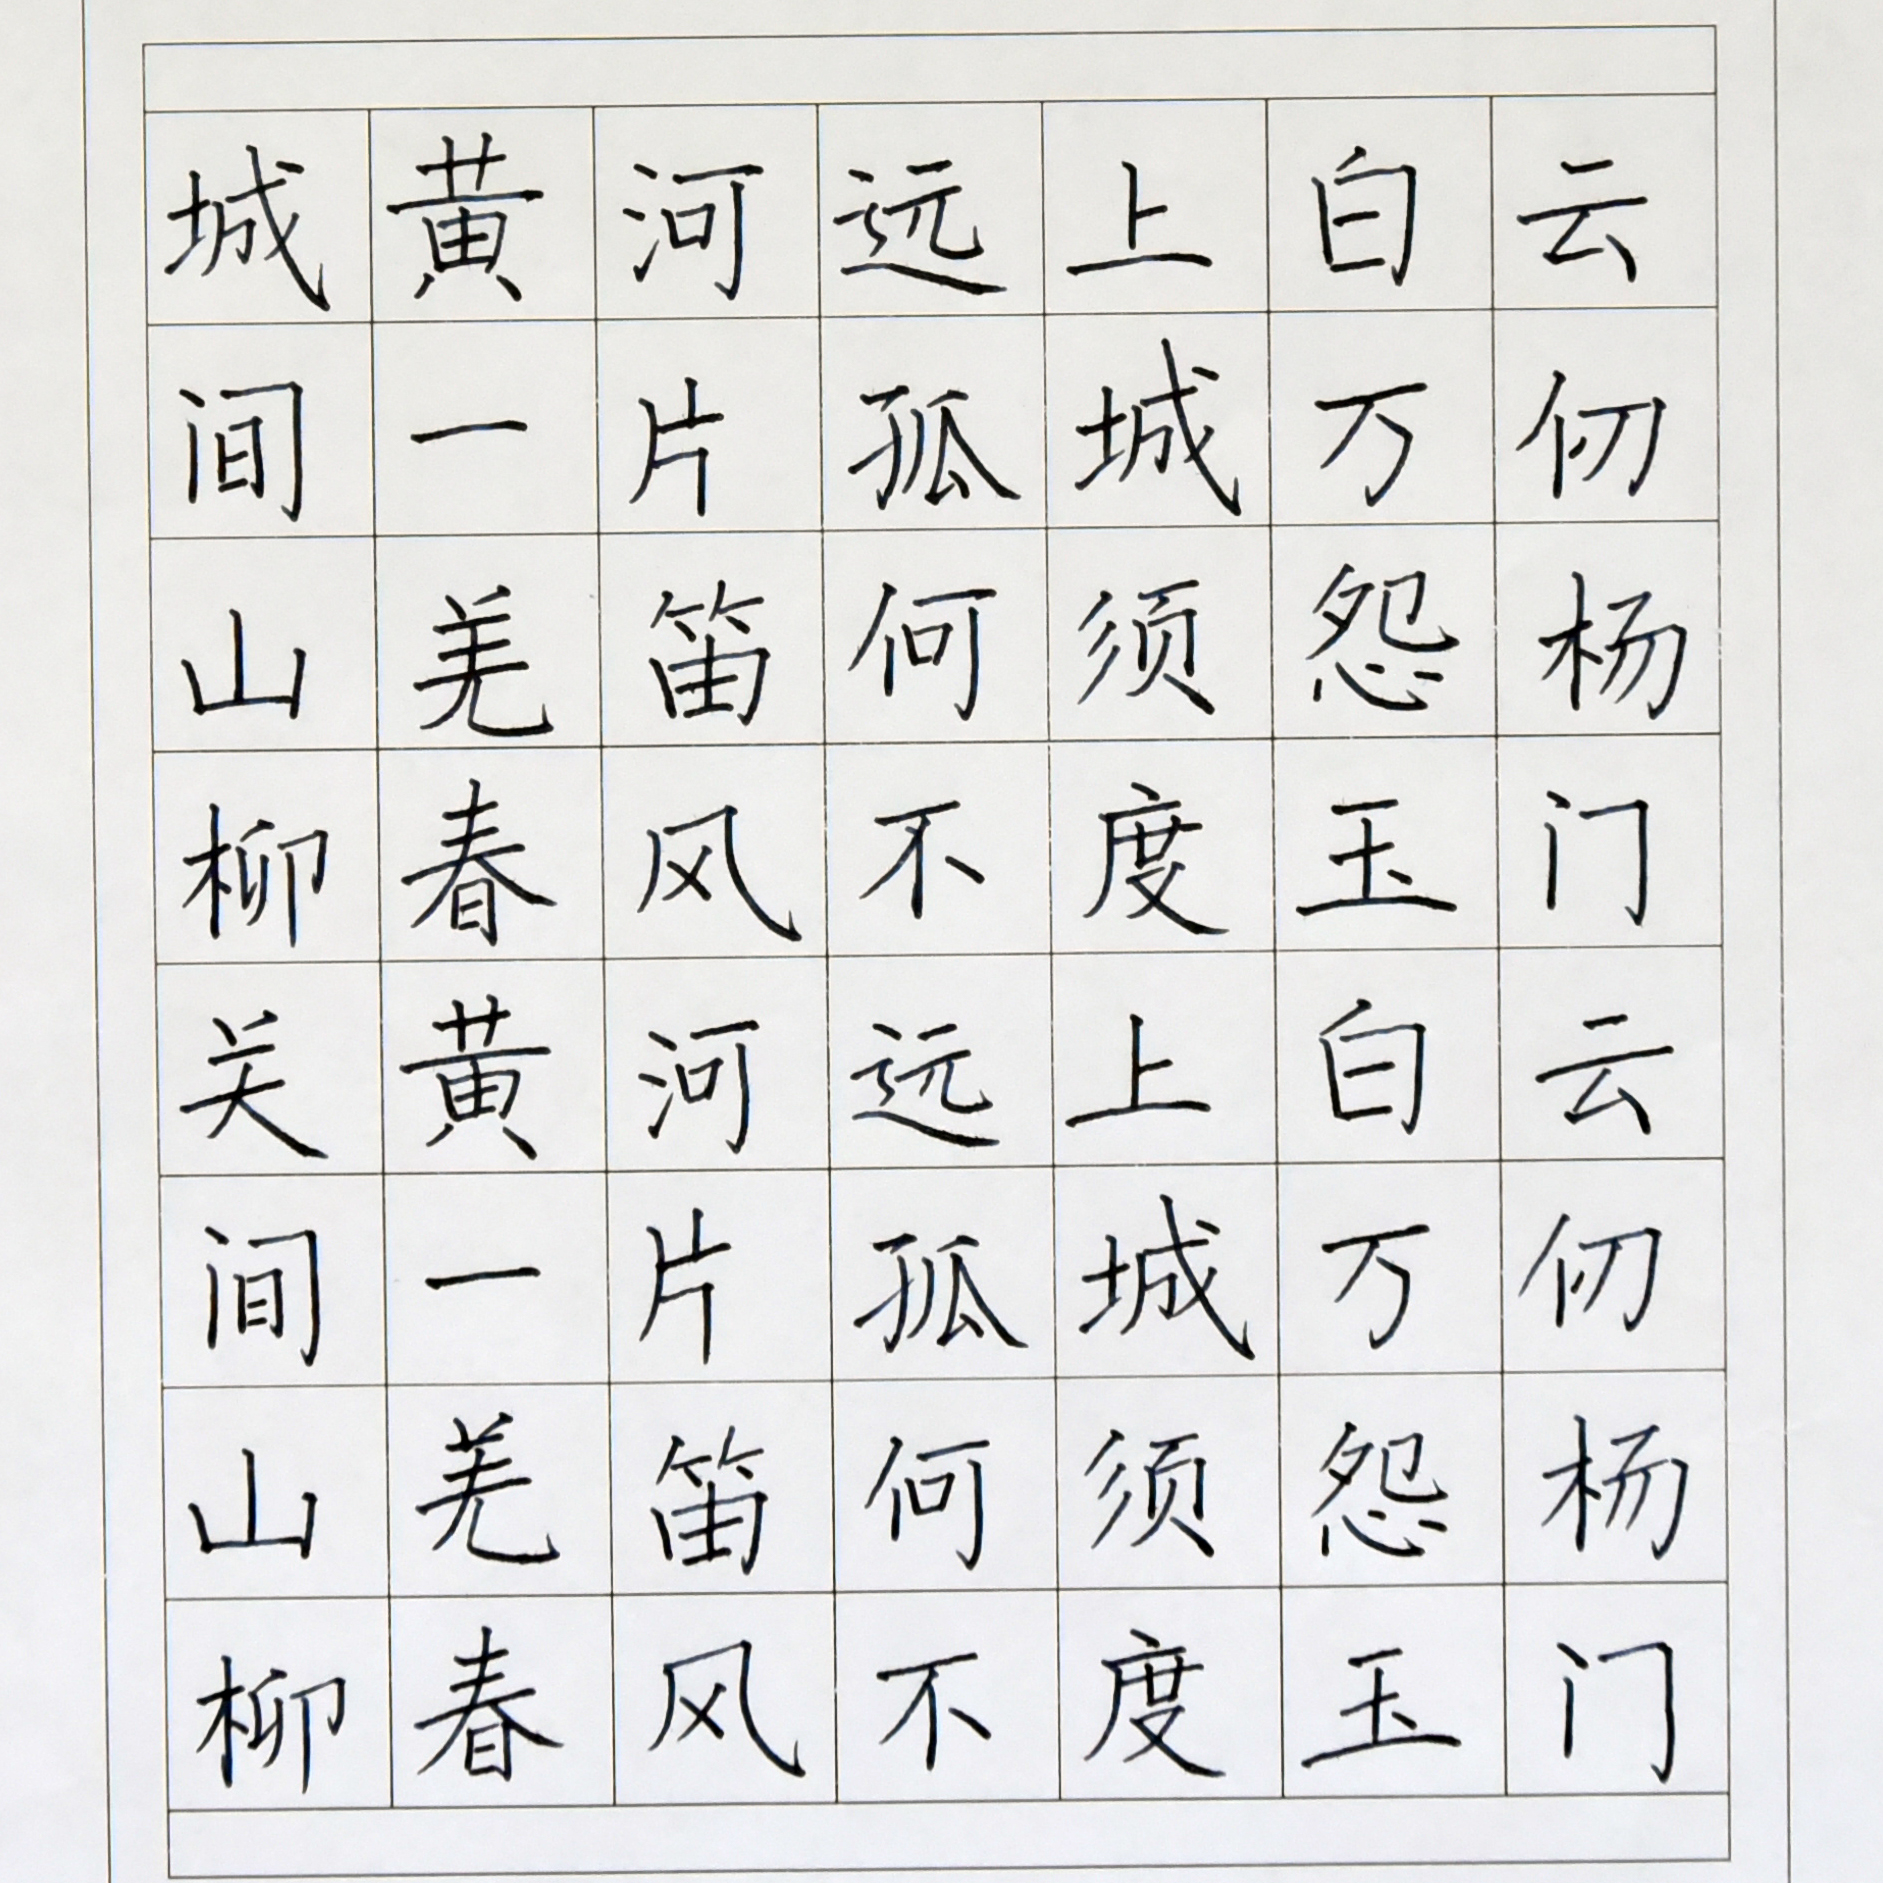 城黄河远上白云
间一片孤城万仞
山羌笛何须怨杨
柳春风不度玉门
关黄河远上白云
间一片孤城万仞
山羌笛何须怨杨
柳春风不度玉门